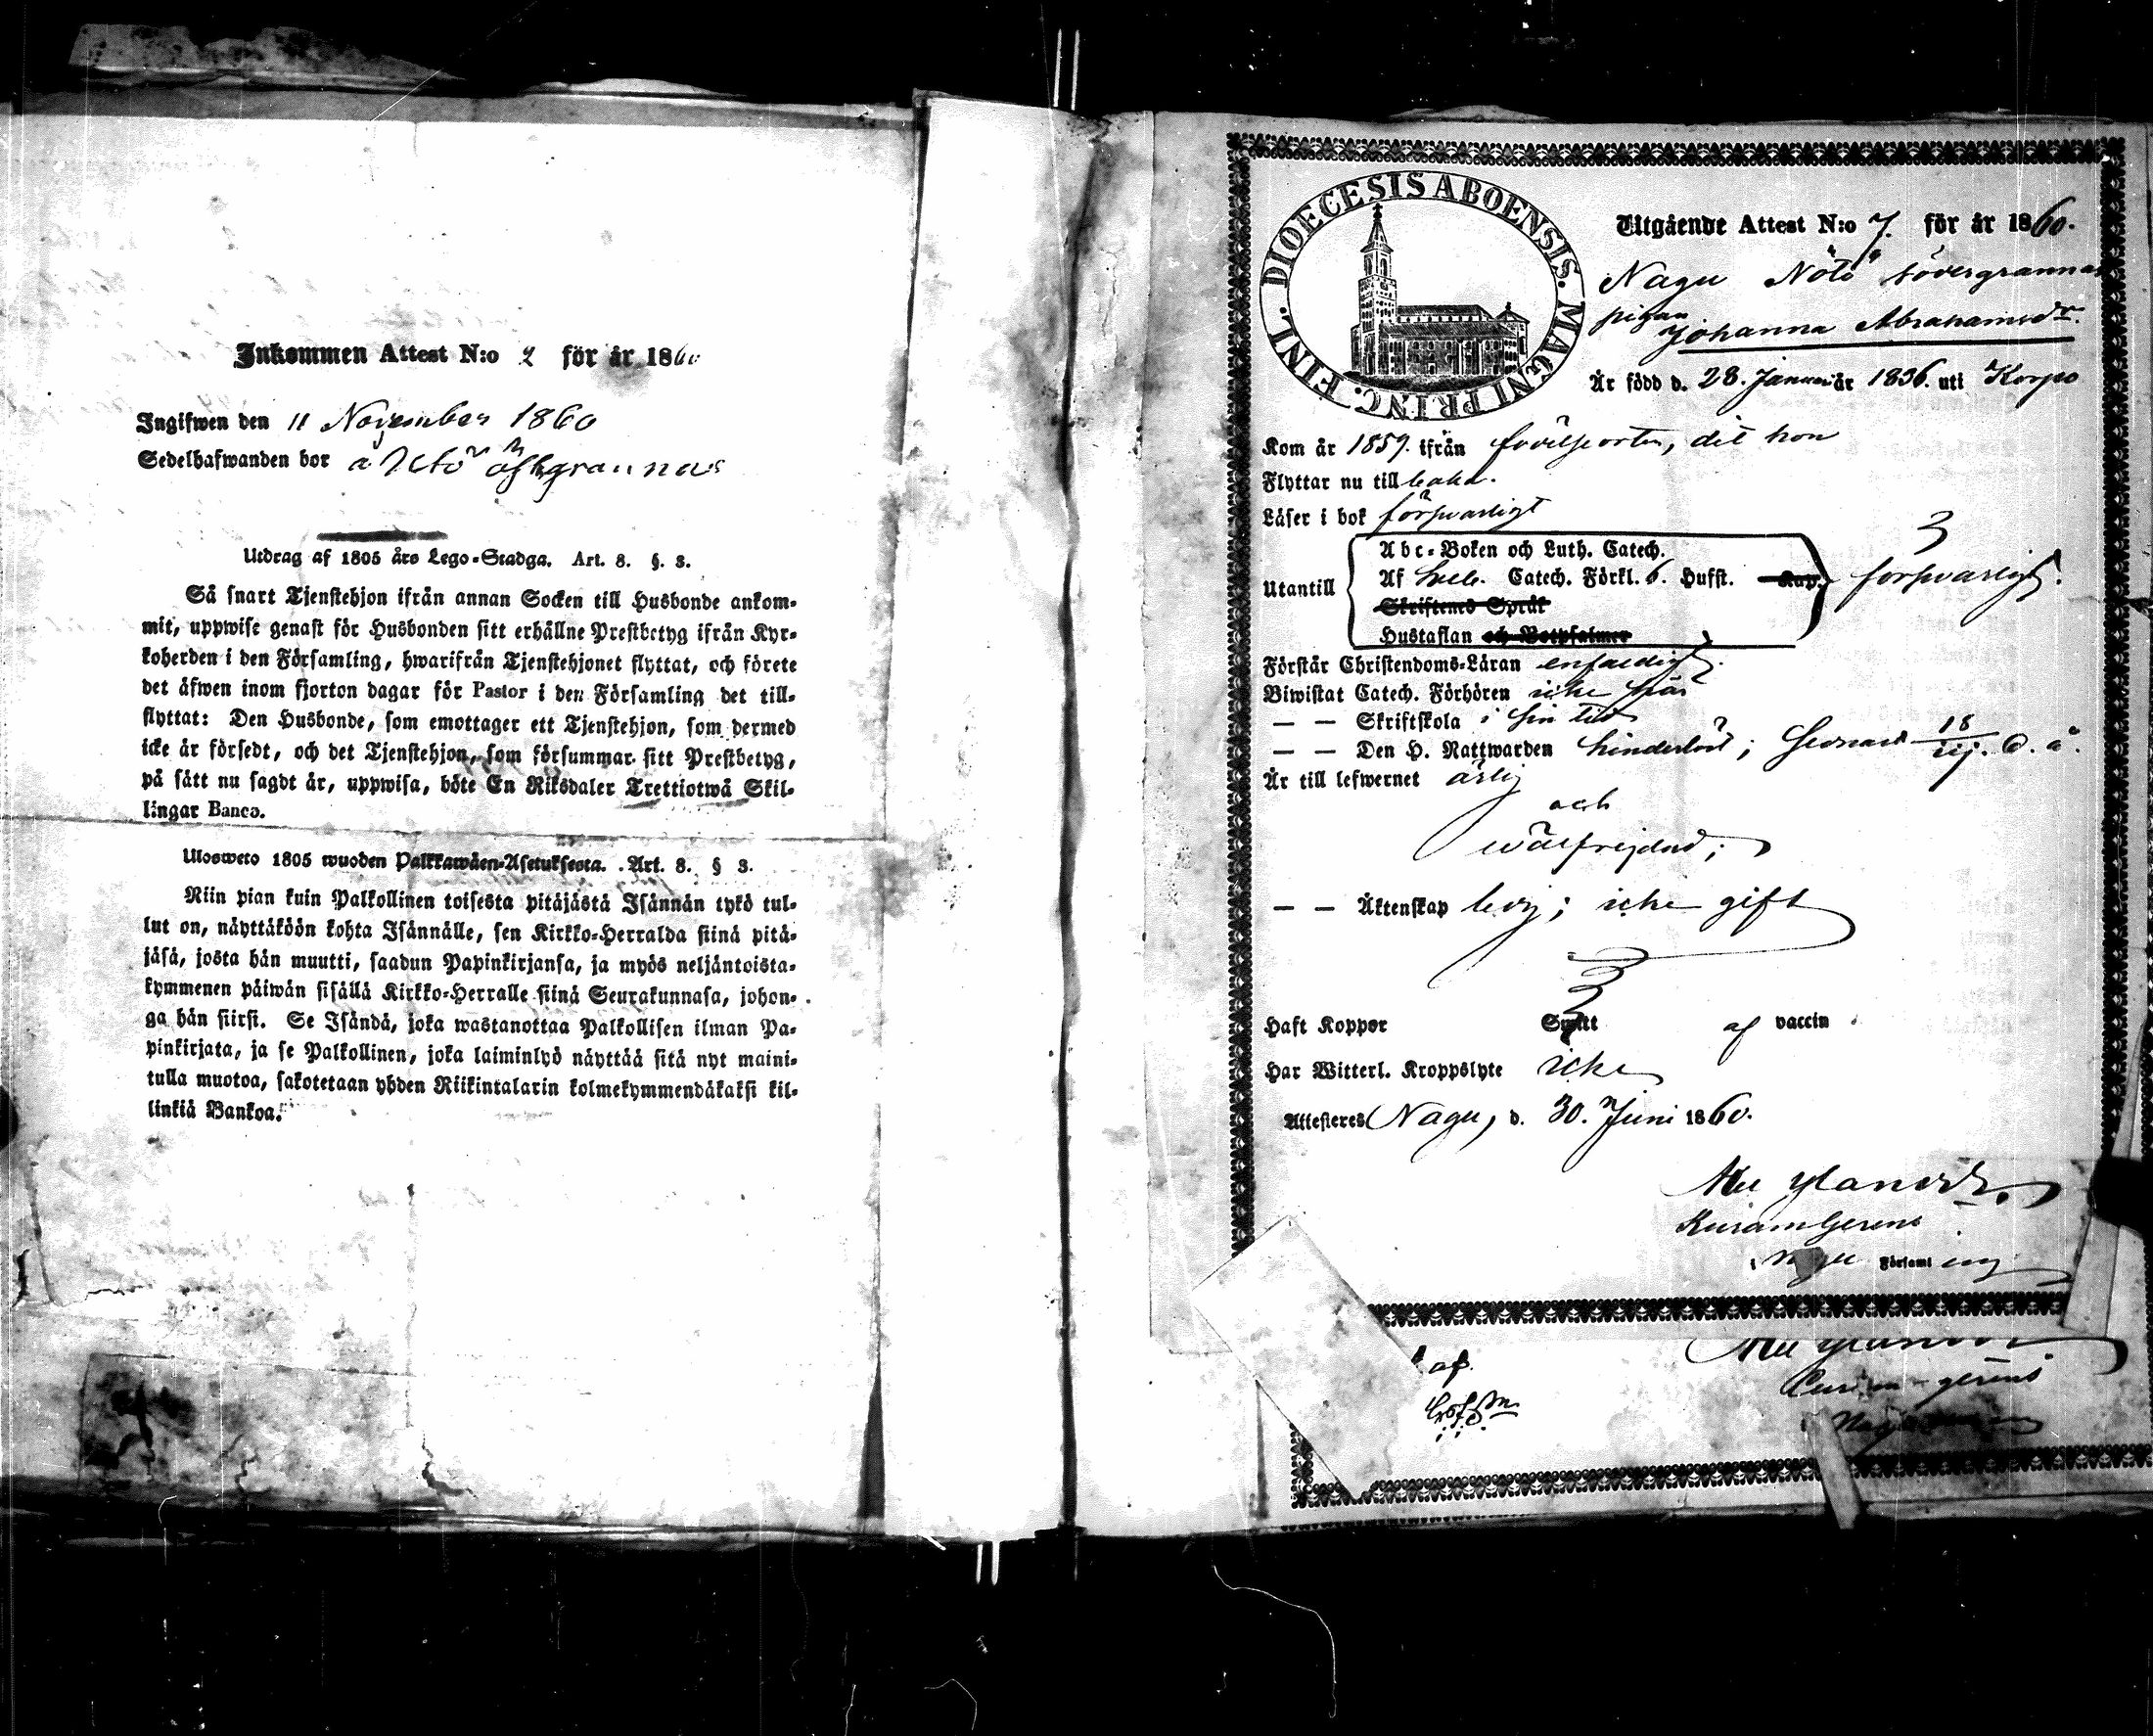 Inkommen Attest N:o 2 för år 1860
Ingifwen den 11 November 1860
Sedelhafwanden bor å Utö östergrannas
Utdrag af 1805 års Lego-Stadga. Art. 8. §. 3.
Så snart Tjenstehjon ifrån annan Socken till Husbonde ankom-
mit, uppwise genast för Husbonden sitt erhållne Prestbetyg ifrån Kyr-
koherden i den Församling, hwarifrån Tjenstehjonet flyttat, och förete
det äfwen inom fjorton dagar för Pastor i den Församling det till-
flyttat: Den Husbonde, som emottager ett Tjenstehjon, som dermed
icke är försedt, och det Tjenstehjon, som försummar sitt Prestbetyg,
på sätt nu sagdt är, uppwisa, böte En Riksdaler Trettiotwå Skil-
lingar Banco.
Ulosweto 1805 wuoden Palkkawäen-Asetuksesta. Art. 8. § 3.
Niin pian kuin Palkollinen toisesta pitäjästä Isännän tykö tul-
lut on, näyttäköön kohta Isännälle, sen Kirkko-Herralda siinä pitä-
jäsä, josta hän muutti, saadun Papinkirjansa, ja myös neljäntoista-
kymmenen päiwän sisällä Kirkko-Herralle siinä Seurakunnasa, johon-
ga hän siirsi. Se Isändä, joka wastanottaa Palkollisen ilman Pa-
pinkirjata, ja se Palkollinen, joka laiminlyö näyttää sitä nyt maini-
tulla muotoa, sakotetaan yhden Riikintalarin kolmekymmendäkaksi kil-
linkiä Bankoa.
DIOECESIS ABOENSIS. MAGNI PRINC. FINL.
Utgående Attest N:o 7. för år 1860.
Nagu Nötö södergrannas
pigan Johanna Abrahamsdr.
Är född d. 28. Januari år 1836. uti Korpo
Kom år 1859. ifrån födelseorten, dit hon
Flyttar nu tillbaka.
Läser i bok försvarligt
Utantill
Abc-Boken och Luth. Catech.
Af Sveb. Catech. Förkl. 6. Hufst. Kap.
Skriftenes Språk
Hustaflan och Botpsalmer
3
försvarligt.
Förstår Christendoms-Läran enfaldigt.
Biwistat Catech. Förhören icke här
— — Skriftskola i sin tid
— — Den H. Nattwarden hinderlöst; senast 18 d. å.
Är till lefwernet ärlig
och
wälfrejdad;
— — Äktenskap ledig; icke gift
Haft Koppor Smitt af vaccin
Har Witterl. Kroppslyte icke
Attesteres Nagu, d. 30. Juni 1860.
Curam Gerens
i Nagu Församling
af
gerens